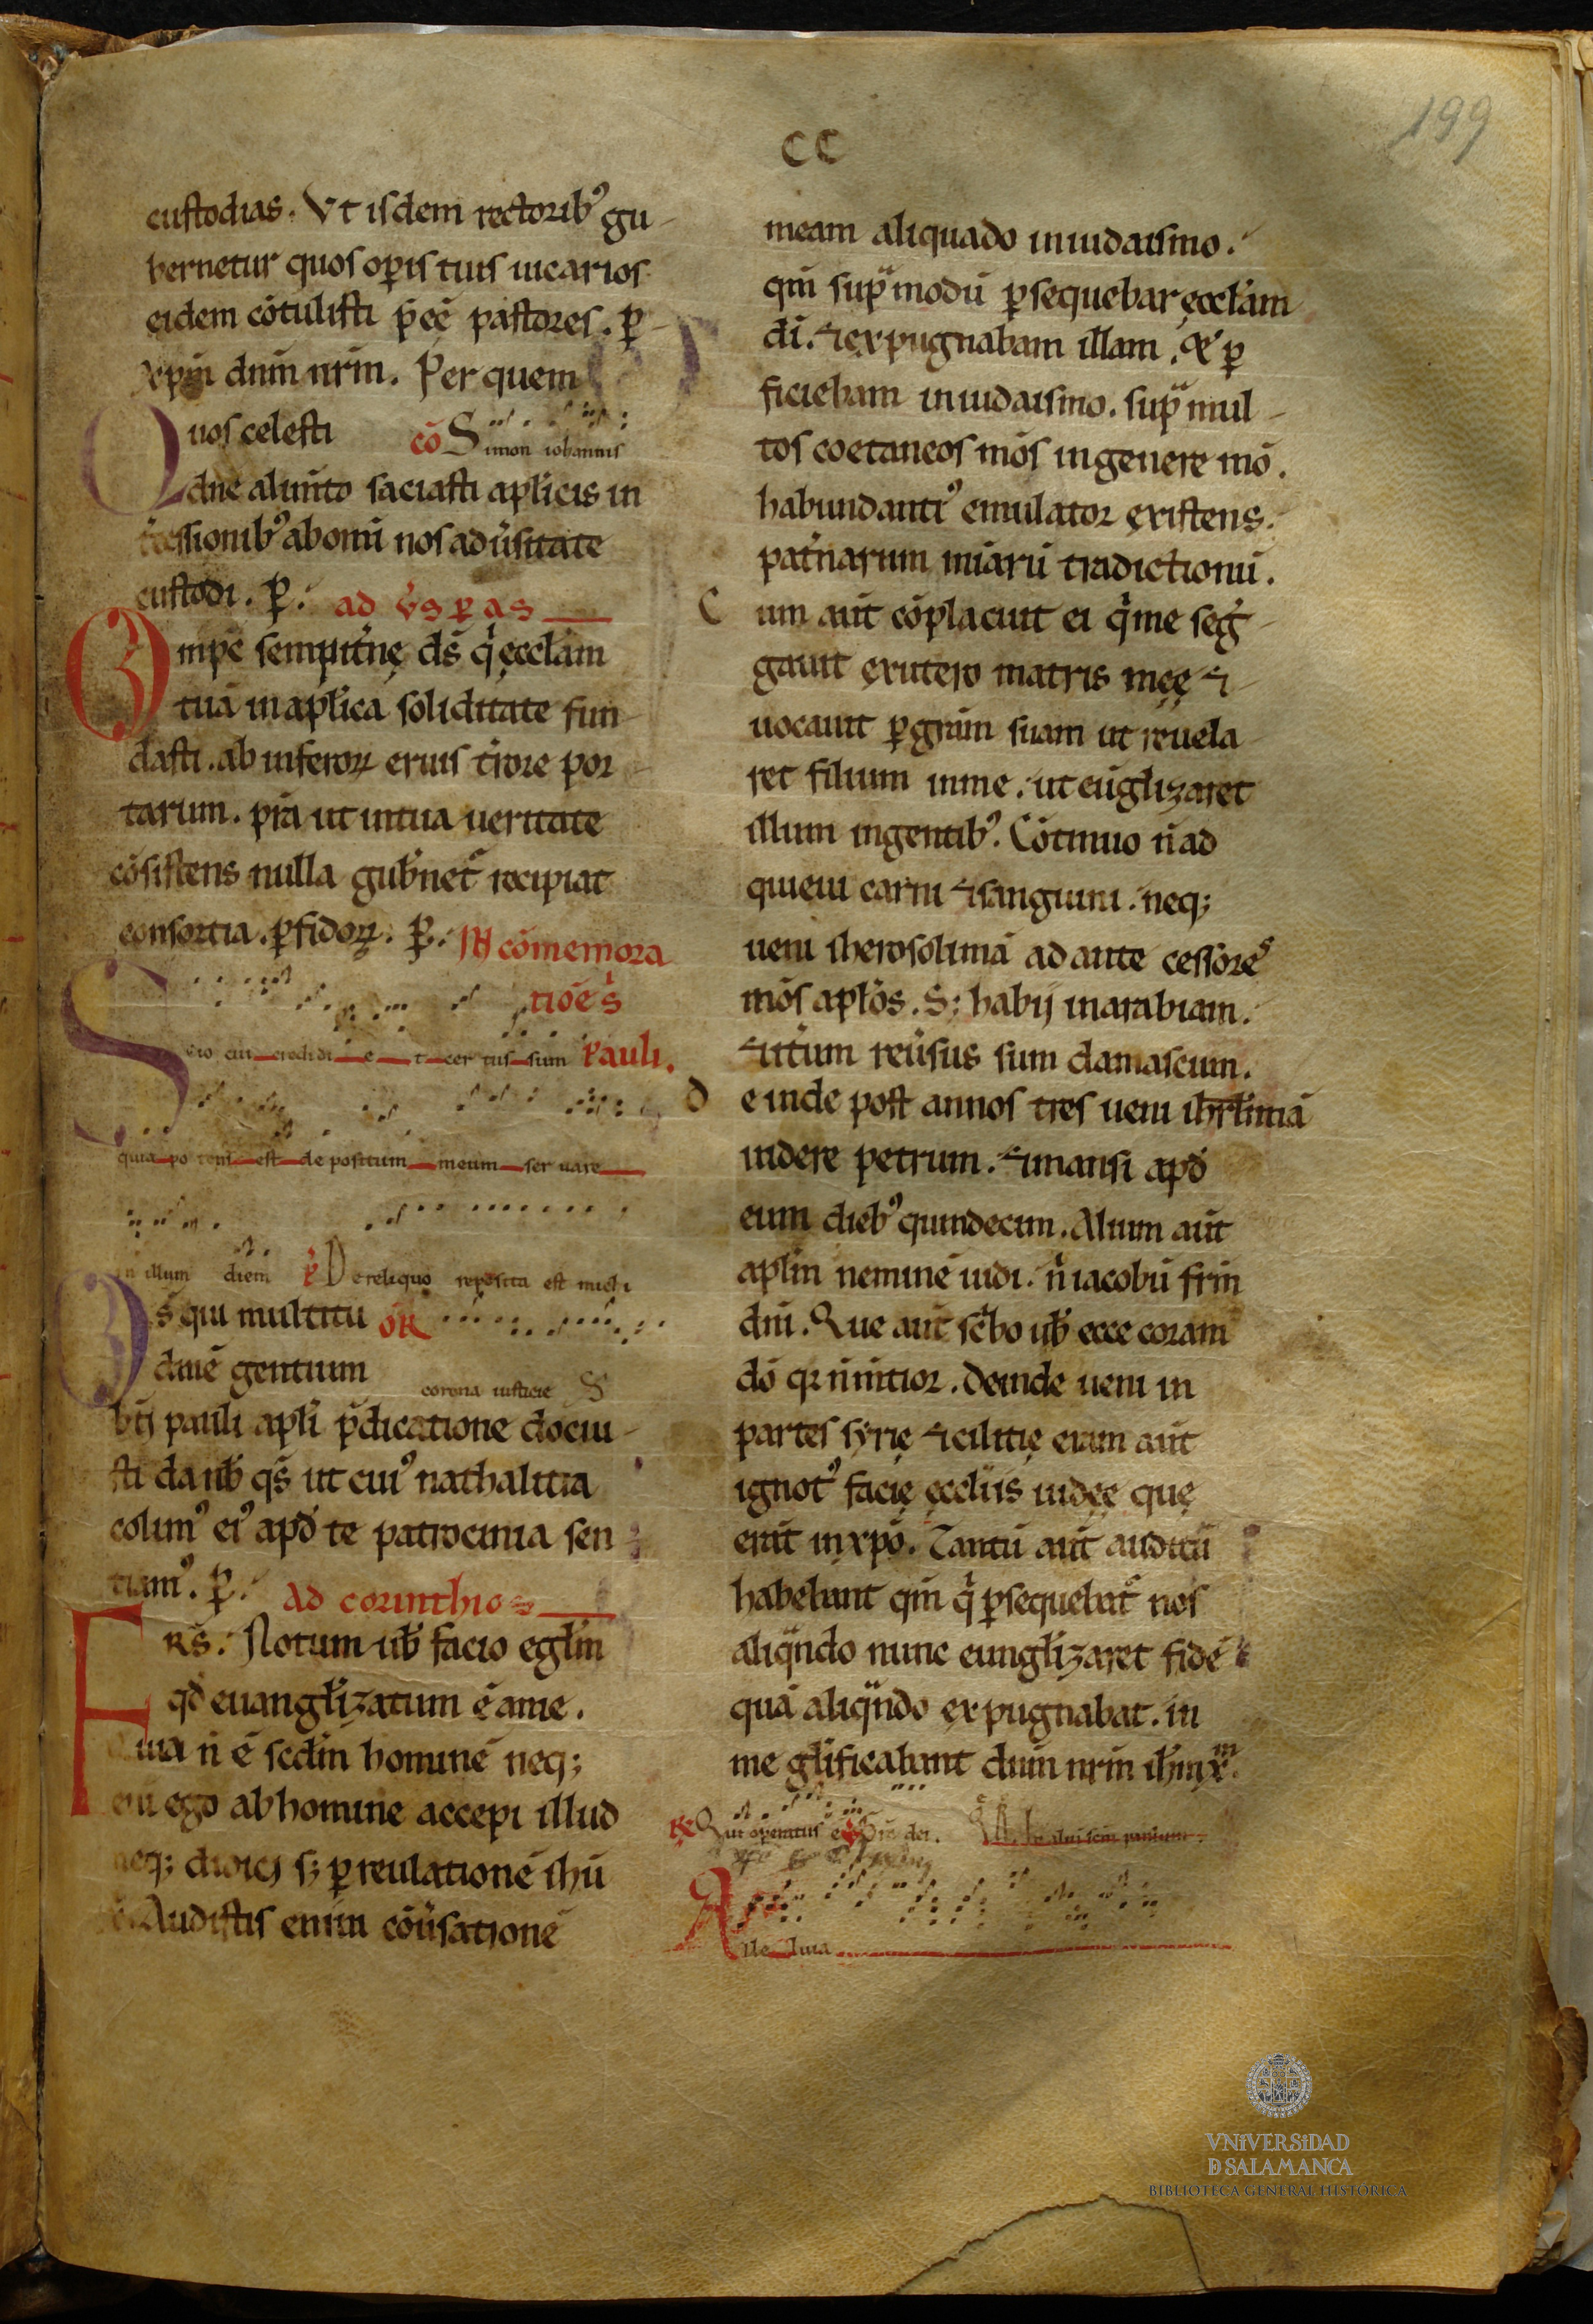 199
CC
custodias. Vt isdem rectorib᾽ gu
bernetur quos op̱is tuis uicarios
eidem cōtulisti p̄eē pastores. ꝑ
xp̄m dn̄m nr̄m. Per quem
Quos celesti cō Simon iohannis
dn̄e alim̄to saciasti apl̄icis in
t̄cessionib᾽ ab om̄i nos adu᾽sitate
custodi. ꝑ. ad ūs ꝑ as
Omp̄c sempit᾽nę ds̄ q͛ ęccl̄am
tuā in apl̄ica soliditate fun
dasti. ab inferoꝝ eruis t᾽rore por
tarum. pr̄a ut in tua ueritate
cōsistens nulla gub᾽net᾽ recipiat
consortia. ꝑfidoꝝ. ꝑ. IN cōmemora
tiōe s̄
Scio cui credidi et certus sum Pauli.
quia potens est depositum meum seruare
in illum diem P̄ De reliquo reposita est michi
Ds̄ qui multitu OR̄
dinē gentium corona iusticie S
bt̄i pauli apl̄i p̄dicatione docui
sti da nob̄ qs̄ ut cui᾽ nathalitia
colim᾽ ei᾽ apd̄ te patrocinia sen
tiam᾽. ꝑ. Ad corinthios
FRS̄. Notum uob̄ facio eḡlm
qd̄ euangl̄izatum ē a me.
quia n̄ ē scd̄m hominē neq;
eni ego ab homine accepi illud
neq; didici s; ꝑ reulationē ihū
Audistis enim cōu᾽sationē
meam aliquado in iudaismo.
qm̄ sup̄ modū ꝑsequebar ęccl̄am
dī. ⁊ expugnabam illam, & ꝑ
ficiebam in iudaismo. sup̄ mul
tos coetaneos mōs in genere mō.
habundanti᾽ emulator existens.
pat᾽narum mearū tradictionū.
Cum aut̄ cōplacuit ei q͛ me seg̃
gauit ex utero matris męę ⁊
uocauit ꝑ grām suam ut reuela
ret filium in me. ut eūgl̄izaret
illum in gentib᾽. Cōtinuo n̄ ad
quieui carni ⁊ sanguini. neq;
ueni iherosolimā ad ante cessōres
mōs apl̄os. S; habij in arabiam.
⁊ it᾽um reu᾽sus sum damascum.
Deinde post annos tres ueni ihrl̄imā
uidere petrum. ⁊ mansi apd̄
eum dieb᾽ quindecim. Alium aut̄
apl̄m neminē uidi. n̄ iacobū fr̄m
dn̄i. Que aut̄ sc̄bo uob̄ ecce coram
dō qꝛ n̄ m̄tior. Deinde ueni in
partes syrię ⁊ cilitię eram aut̄
ignot᾽ facię ęccl̄iis iudęę quę
erāt in xpō. Tantū aut̄ auditū
habebant qm̄ q͛ ꝑsequebat᾽ nos
aliqn̄do nunc eungl̄izaret fidē
quā aliqn̄do expugnabat. in
me gl̄ificabant dn̄m nr̄m ihm̄ xm.
R̄ Qui operatus ē
Alleluia
VNiVERSiDAD
D SALAMANCA
BIBLIOTECA GENERAL HISTÓRICA